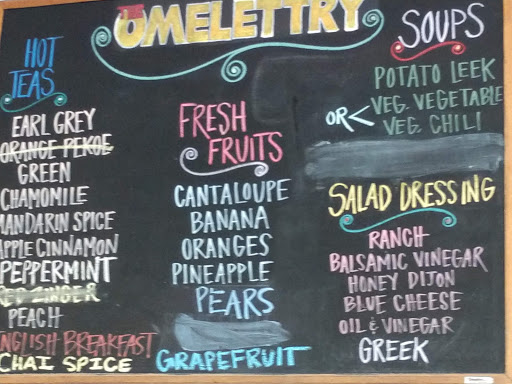 THE OMELETTRY
HOT
TEAS
EARL GREY
ORANGE PEKOE
GREEN
CHAMOMILE
MANDARIN SPICE
APPLE CINNAMON
PEPPERMINT
RED ZINGER
PEACH
ENGLISH BREAKFAST
CHAI SPICE
FRESH
FRUITS
CANTALOUPE
BANANA
ORANGES
PINEAPPLE
PEARS
GRAPEFRUIT
SOUPS
POTATO LEEK
OR< VEG. VEGETABLE
VEG. CHILI
SALAD DRESSING
RANCH
BALSAMIC VINEGAR
HONEY DIJON
BLUE CHEESE
OIL & VINEGAR
GREEK